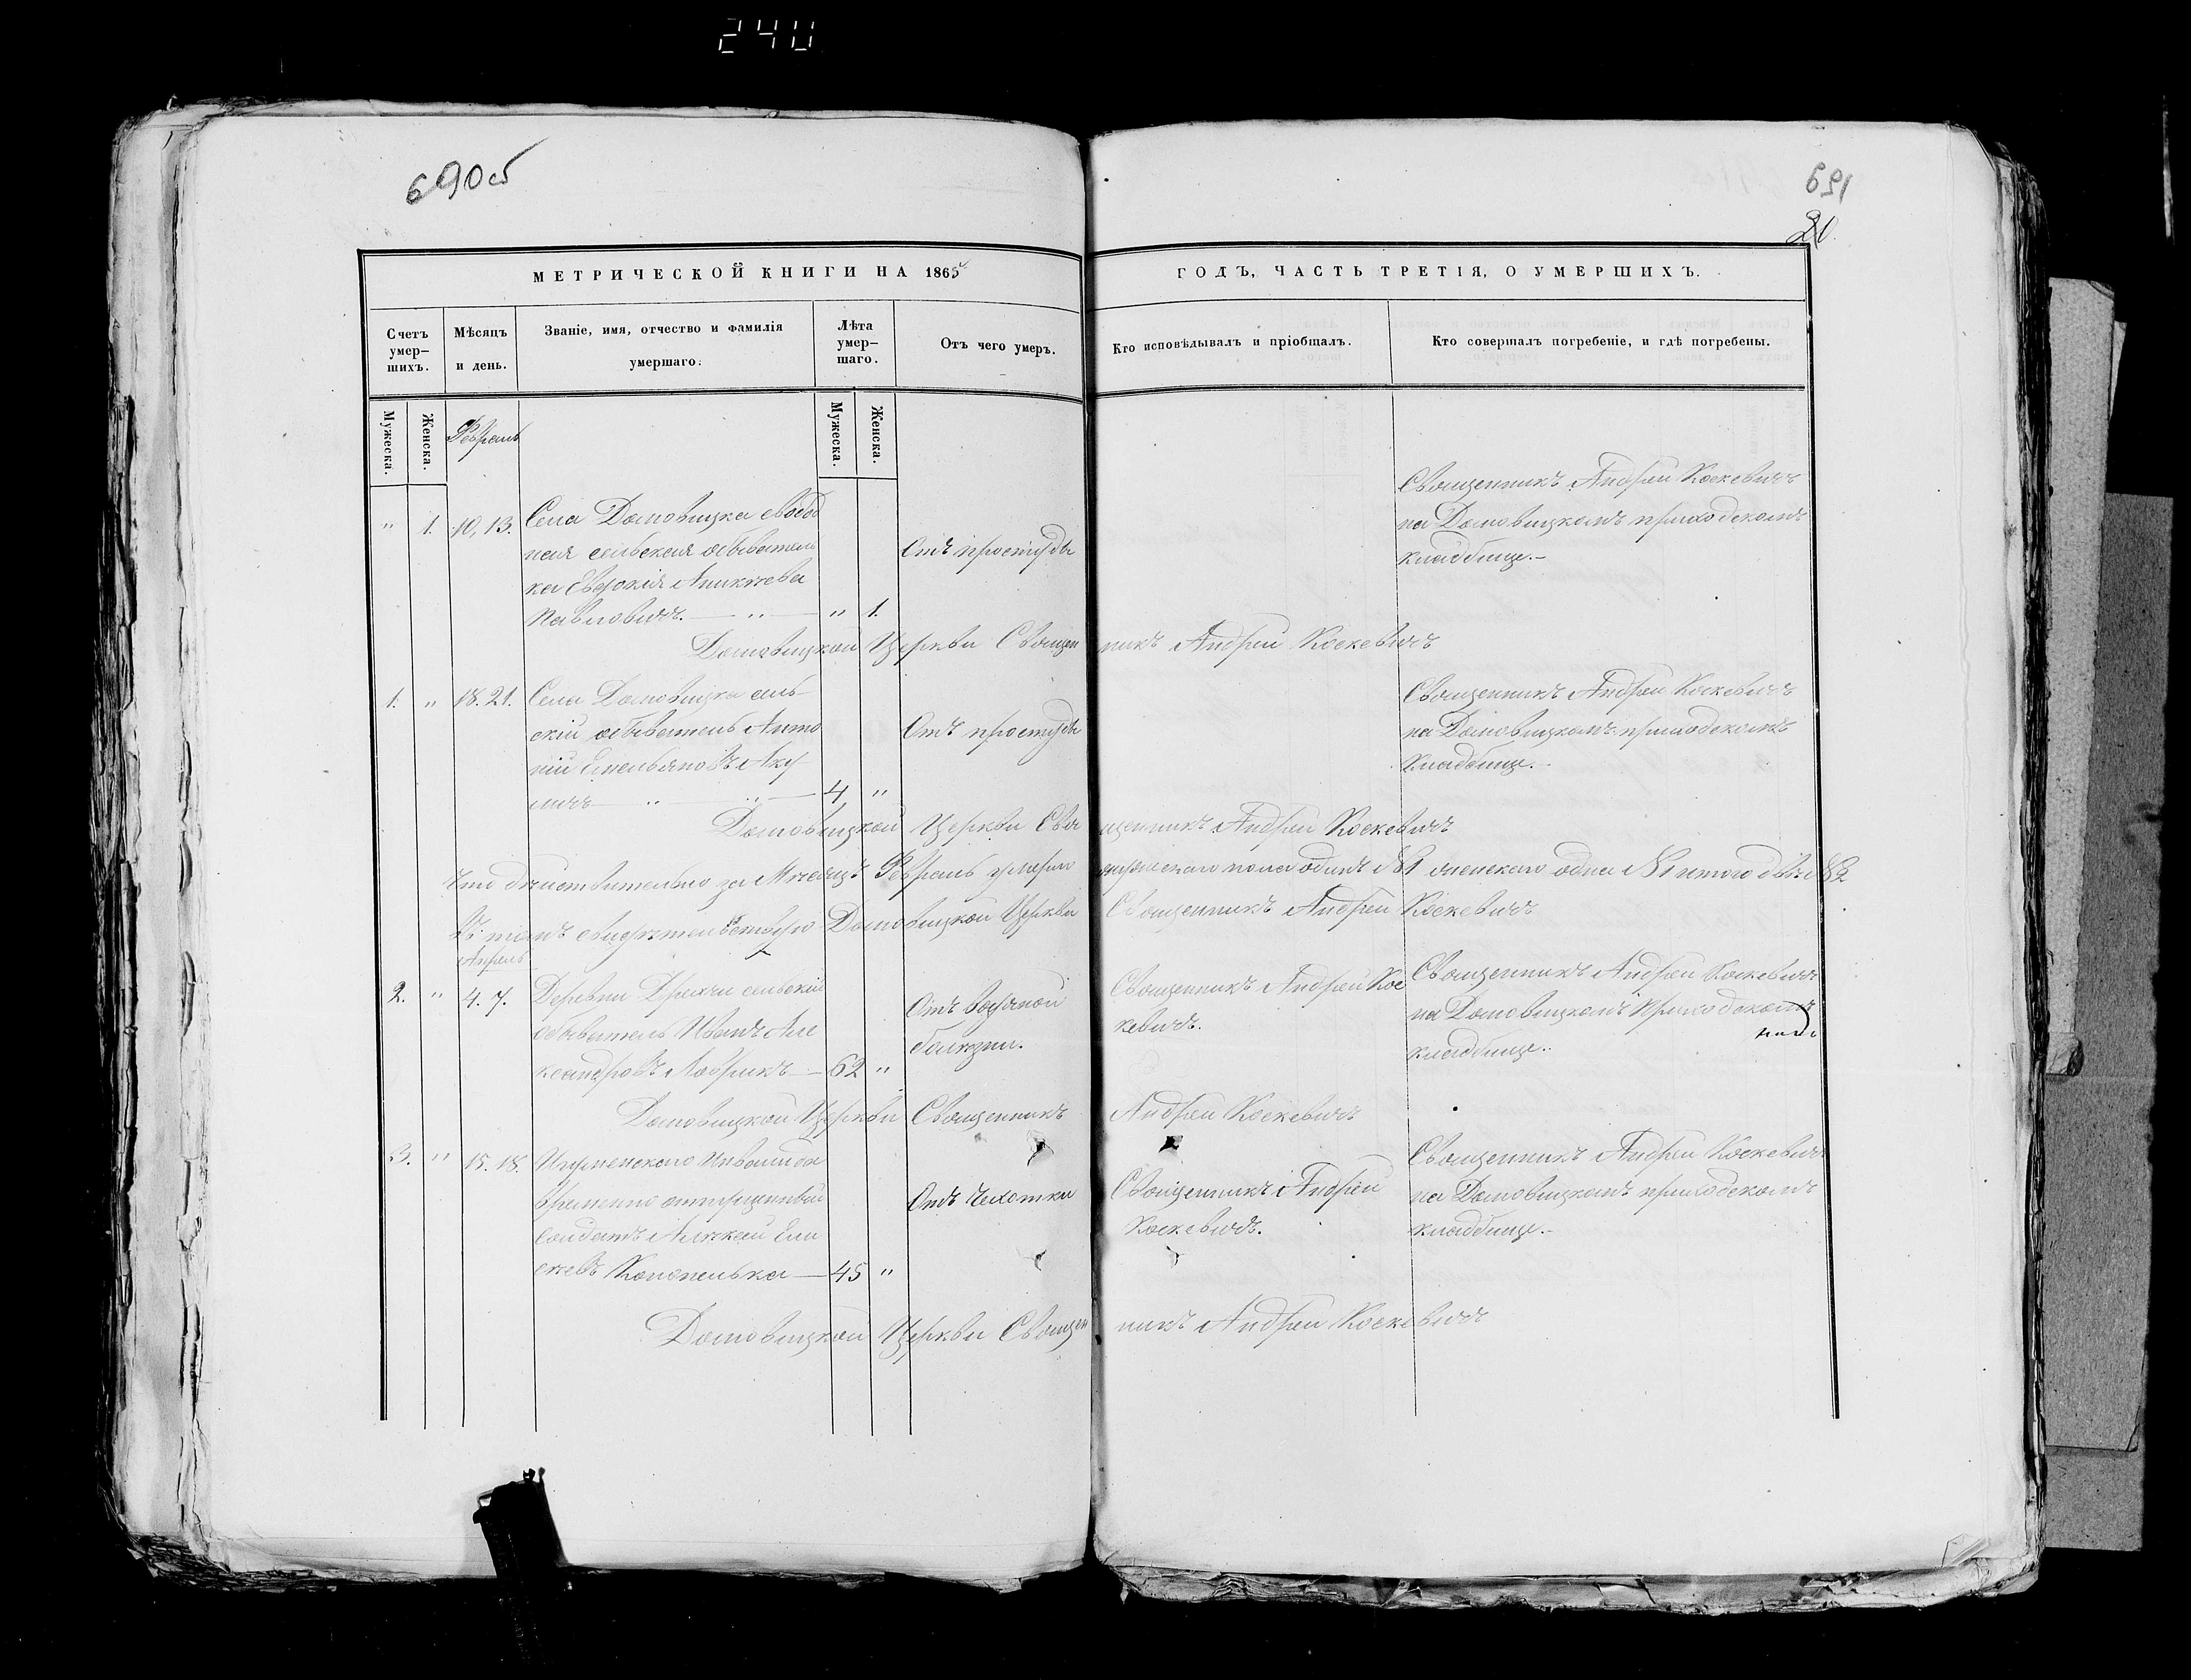 240
690об
691
20.
МЕТРИЧЕСКОЙ КНИГИ НА 1865 ГОДЪ, ЧАСТЬ ТРЕТІЯ, О УМЕРШИХЪ.
Счетъ умер-
шихъ.
Мѣсяцъ
и день.
Званіе, имя, отчество и фамилія
умершаго.
Лѣта
умер-
шаго.
Отъ чего умеръ.
Кто исповѣдывалъ и пріобщалъ.
Кто совершалъ погребеніе, и гдѣ погребены.
Мужеска.
Женска.
Февраль
Мужеска.
Женска.
" 1. 10, 13.
Села Домовицка свобод
ная сельская обыватель
ка Евдокія Аникіева
Павловичъ. — " — " 1.
Отъ простуды
Священникъ Андрей Коскевичъ
на Домовицкомъ приходскомъ
кладбище.-
Домовицкой Церкви Священникъ Андрей Коскевичъ
1. " 18. 21.
Села Домовицка сель-
скій обыватель Анто
ній Емельяновъ Аку
личъ — " — " — 4 "
Отъ простуды
Священникъ Андрей Коскевичъ
на Домовицкомъ приходскомъ
кладбище.-
Домовицкой Церкви Священникъ Андрей Коскевичъ
Что действительно за Месяцъ Февраль умерло мужескаго пола одинъ №1 женскаго одна №1 итого две №2
Въ томъ свидѣтельствую Домовицкой Церкви Священникъ Андрей Коскевичъ
Апрель
2. " 4. 7.
Деревни сельскій
обыватель Иванъ Але
ксандровъ Лаврикъ — 62 "
Отъ водяной
болезни.
Священникъ Андрей Кос
кевичъ.
Священникъ Андрей Коскевичъ
на Домовицкомъ Приходскомъ
кладбище.-
Домовицкой Церкви Священникъ Андрей Коскевичъ
3. " 15. 18.
Игуменскаго Инвалида
временно отпущенный
солдатъ Алексей Ели
сеевъ Конопелька — 45 "
Отъ Чахотки
Священникъ Андрей
Коскевичъ.
Священникъ Андрей Коскевичъ
на Домовицкомъ приходскомъ
кладбище.-
Домовицкой Церкви Священникъ Андрей Коскевичъ